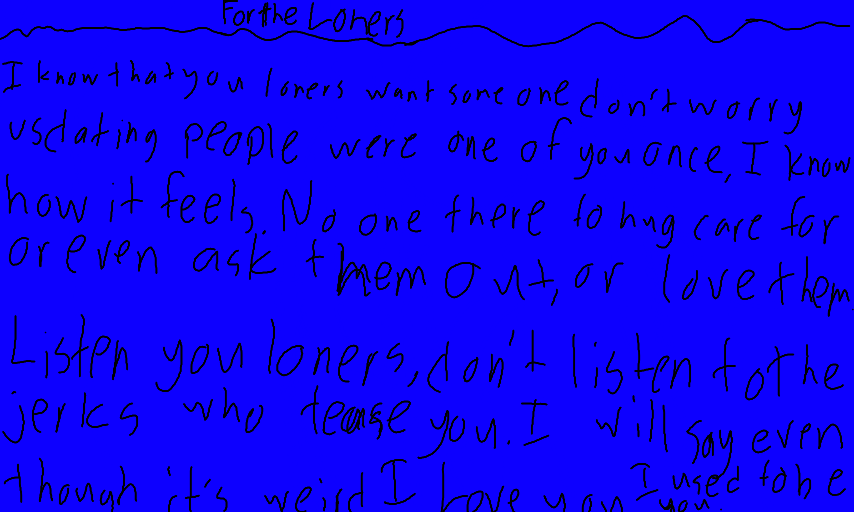 For the Loners
I know that you loners want some one don't worry
us dating people were one of you once, I know
how it feels. No one there to hug care for
or even ask them out, or love them
Listen you loners, don't listen to the
jerks who tease you. I will say even
though it's weird I Love you I used to be
you.